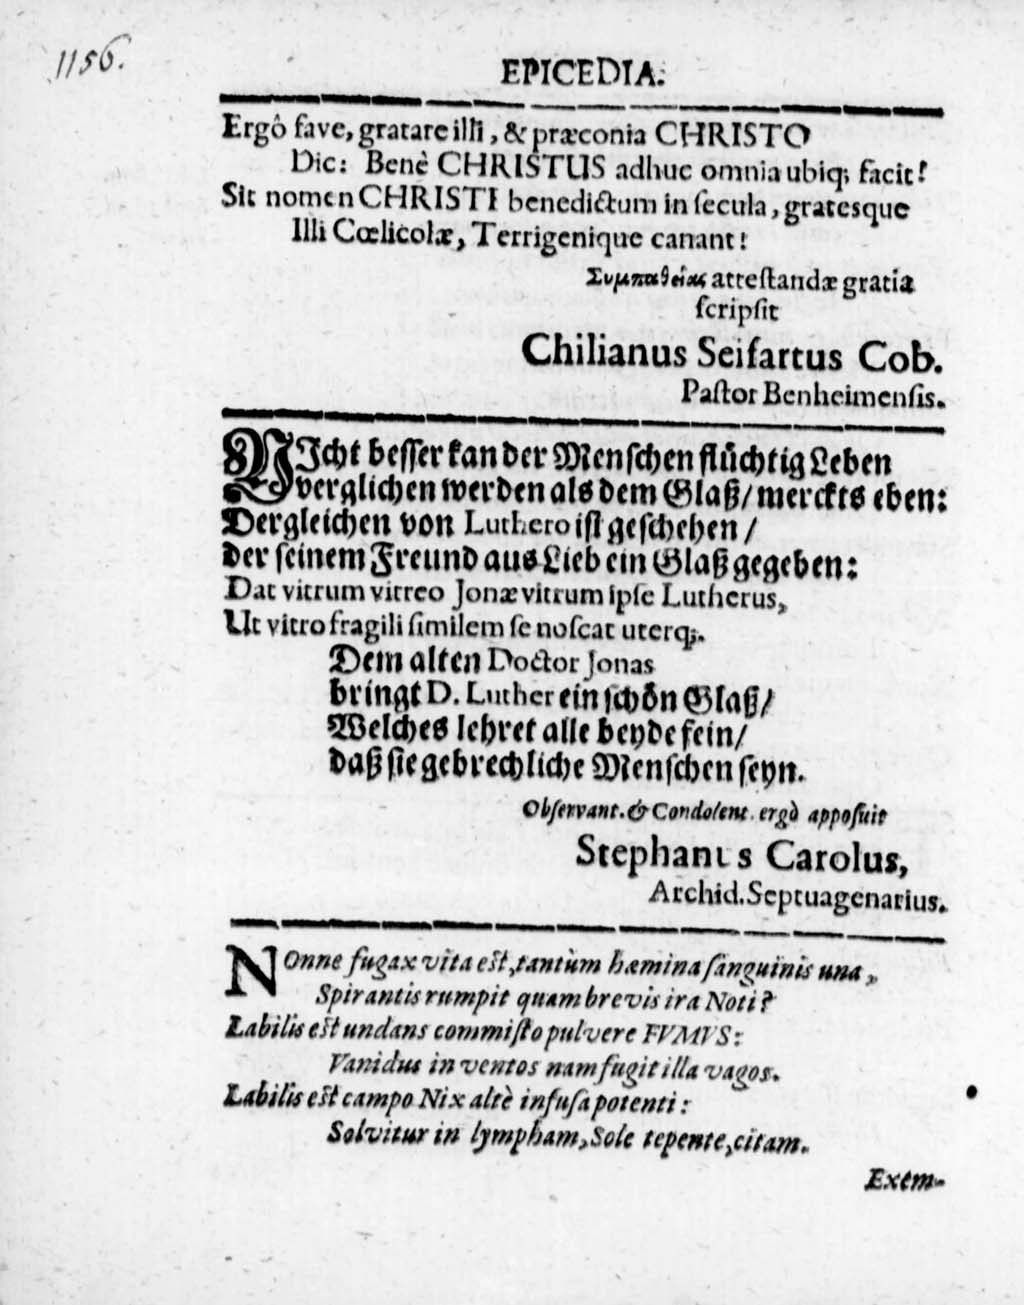 1156.
EPICEDIA.
Ergô fave, gratare illi, & præconia CHRISTO
Dic: Benè CHRISTUS adhuc omnia ubiq; facit!
Sit nomen CHRISTI benedictum in ſecula, grateſque
Illi Cœlicolæ, Terrigenique canant!
Συμπαθείας atteſtandæ gratiâ
ſcripſit
Chilianus Seifartus Cob.
Paſtor Benheimenſis.
NIcht beſſer kan der Menſchen flüchtig Leben
verglichen werden als dem Glaß/ merckts eben:
Dergleichen von Luthero iſt geſchehen/
der ſeinem Freund aus Lieb ein Glaß gegeben:
Dat vitrum vitreo Jonæ vitrum ipſe Lutherus,
Ut vitro fragili ſimilem ſe noſcat uterq;.
Dem alten Doctor Jonas
bringt D. Luther ein ſchön Glaß/
Welches lehret alle beyde fein/
daß ſie gebrechliche Menſchen ſeyn.
Obſervant. & Condolent. ergò appoſuit
Stephanus Carolus,
Archid. Septuagenarius.
NOnne fugax vita eſt, tantùm hæmina ſanguinis una,
Spirantis rumpit quam brevis ira Noti?
Labilis eſt undans commiſto pulvere FVMVS:
Vanidus in ventos nam fugit illa vagos.
Labilis eſt campo Nix altè infuſa potenti:
Solvitur in lympham, Sole tepente, citam.
Exem-